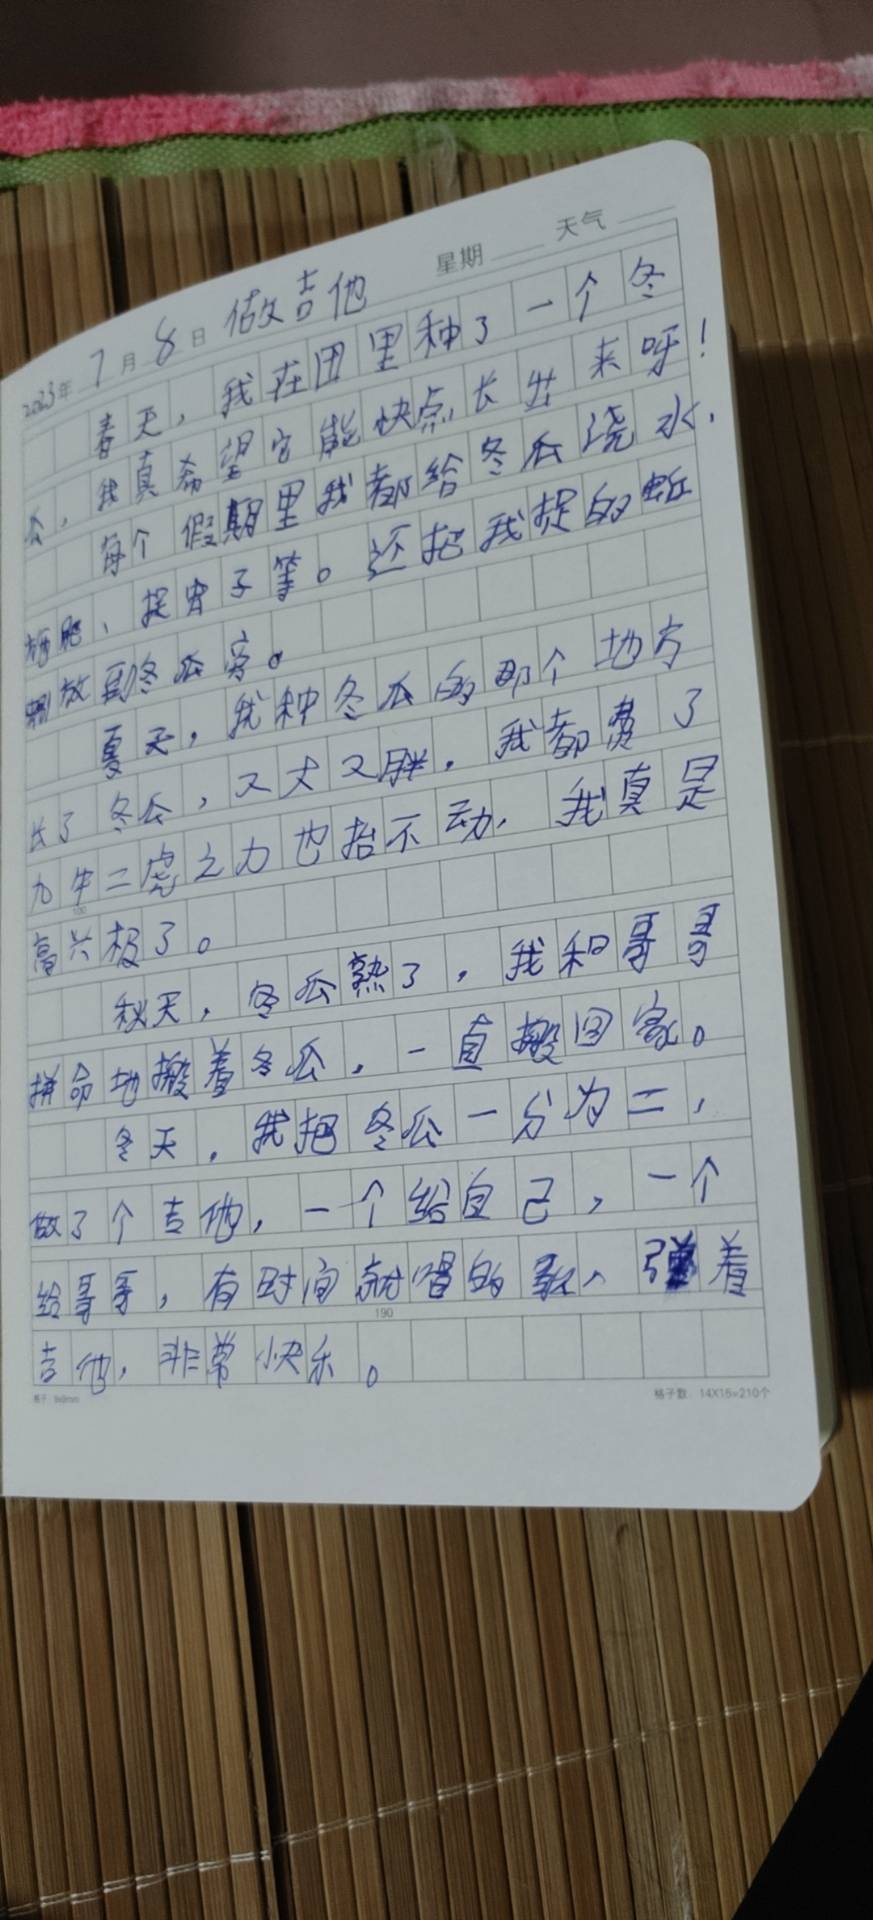 2023年 7月 8日 做吉他 星期 天气
春天，我在田里种了一个冬
瓜，我真希望它能快点长出来呀！
每个假期里我都给冬瓜浇水、
施肥、捉虫子等。还把我捉的蚯
蚓放到冬瓜旁。
夏天，我种冬瓜的那个地方
长了冬瓜，又大又胖，我都费了
九牛二虎之力也抬不动，我真是
100
高兴极了。
秋天，冬瓜熟了，我和哥哥
拼命地搬着冬瓜，一直搬回家。
冬天，我把冬瓜一分为二，
做了个吉他，一个给自己，一个
给哥哥，有时间就唱的歌、弹着
190
吉他，非常快乐。
格子数：14X15=210个